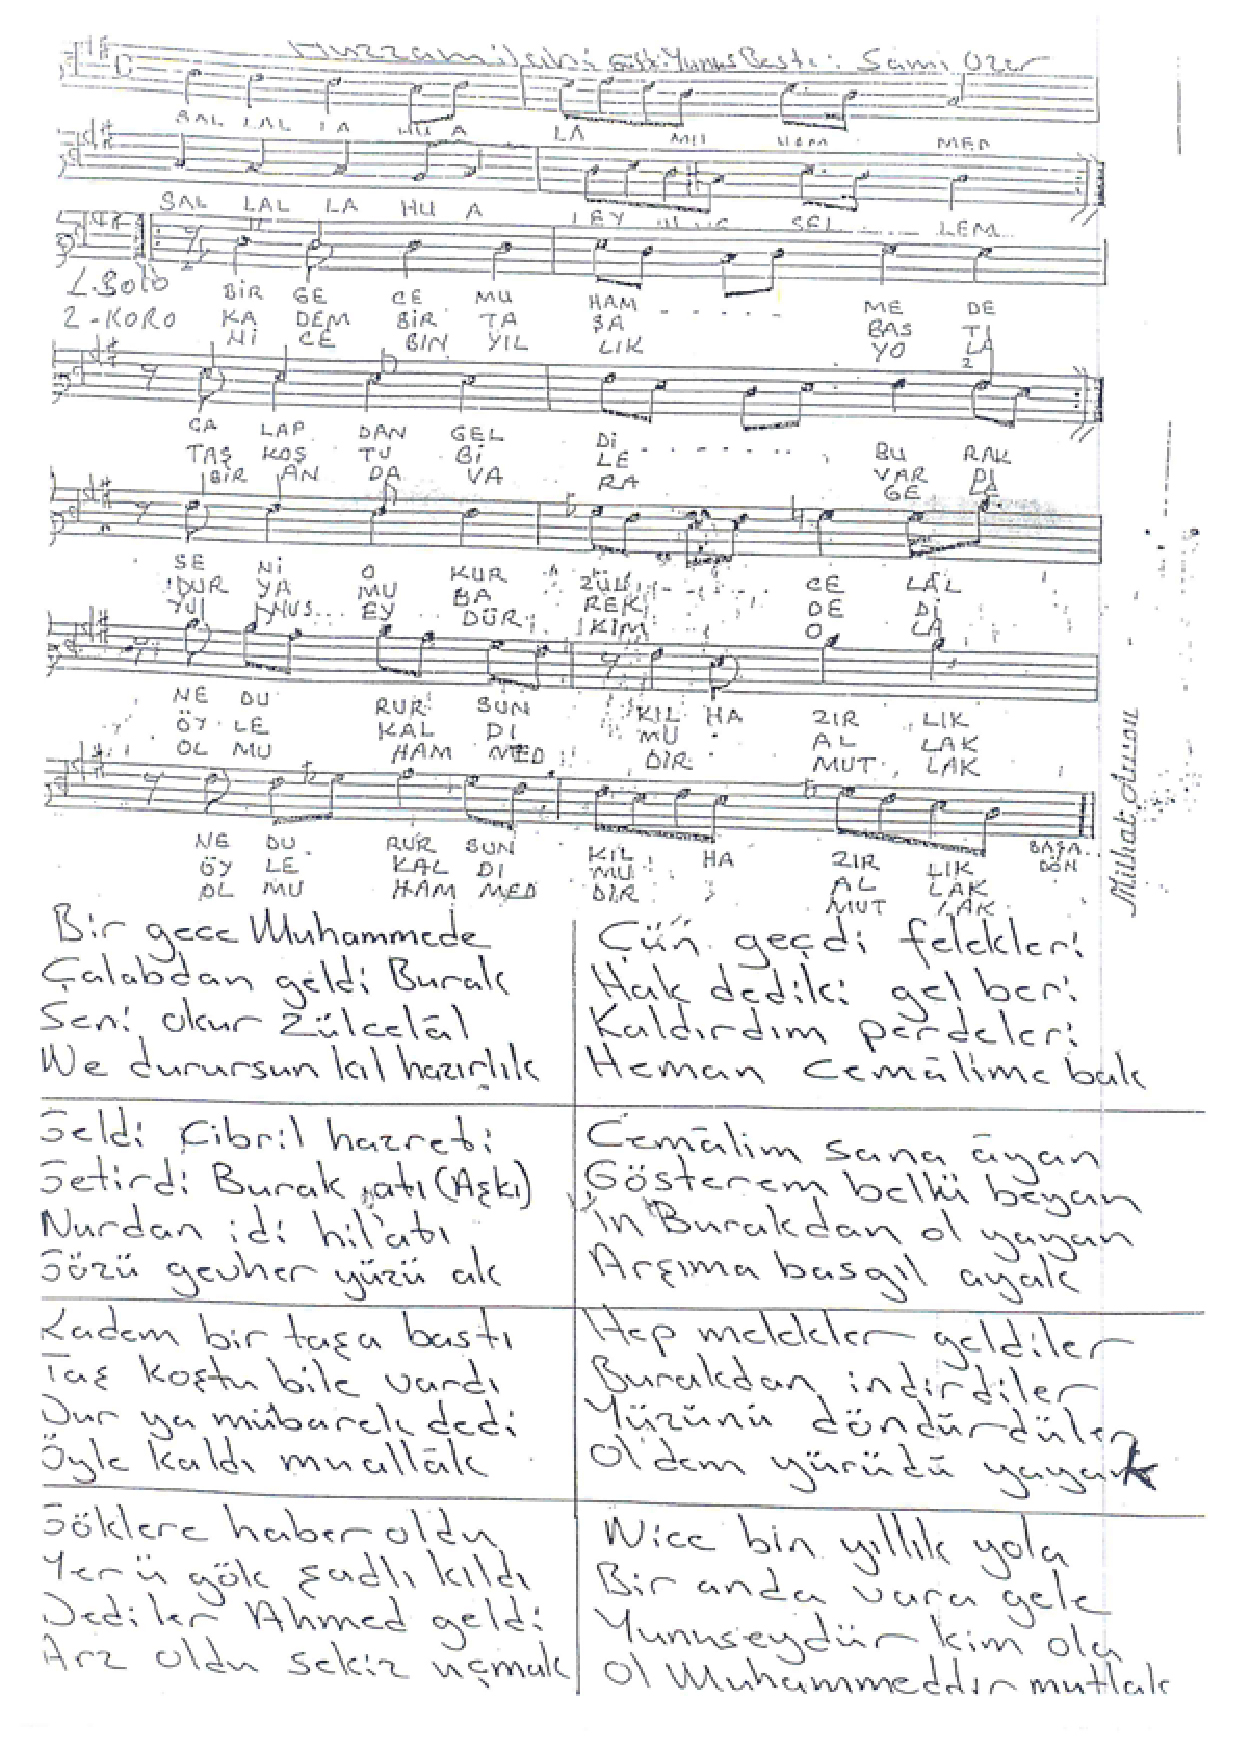 Hüzzam ilahi Güfte: Yunus Beste: Sami Özer
SAL LAL LA HU A LA MU HAM MED
SAL LAL LA HU A LEY SEL LEM
1. Solo BİR GE CE MU HAM ME DE
2 - KORO KA DEM BİR TA ŞA BAS TI
Nİ CE BİN YIL LIK YO LA
ÇA LAP DAN GEL Dİ BU RAK
TAŞ KOŞ TU Bİ LE VAR DI
BİR AN DA VA RA GE LE
SE Nİ O KUR ZÜL CE LÂL
DUR YA MU BA REK DE Dİ
YU NUS EY DÜR KİM O LA
NE DU RUR SUN KIL HA ZIR LIK
ÖY LE KAL DI MU AL LAK
OL MU HAM MED DİR MUT LAK
NE DU RUR SUN KIL HA ZIR LIK BAŞA DÖN
ÖY LE KAL DI MU AL LAK
OL MU HAM MED DİR MUT LAK
Mithat
Bir gece Muhammede
Çalabdan geldi Burak
Seni okur Zülcelâl
Ne durursun kıl hazırlık
Geldi Cibril hazreti
Getirdi Burak atı (Aşkı)
Nurdan idi hil'atı
Gözü gevher yüzü ak
Kadem bir taşa bastı
Taş koştu bile vardı
Dur ya mübarek dedi
Öyle kaldı muallâk
Göklere haber oldu
Yer ü gök şadlı kıldı
Dediler Ahmed geldi
Arz oldu sekiz uçmak
Çün geçdi felekleri
Hak dediki gel beri
Kaldırdım perdeleri
Heman cemâlime bak
Cemâlim sana âyan
Gösterem bellü beyan
İn Burakdan ol yayan
Arşıma basgıl ayak
Hep melekler geldiler
Burakdan indirdiler
Yüzünü döndürdüler
Ol dem yürüdü yayak
Nice bin yıllık yola
Bir anda vara gele
Yunuseydür kim ola
Ol Muhammeddir mutlak